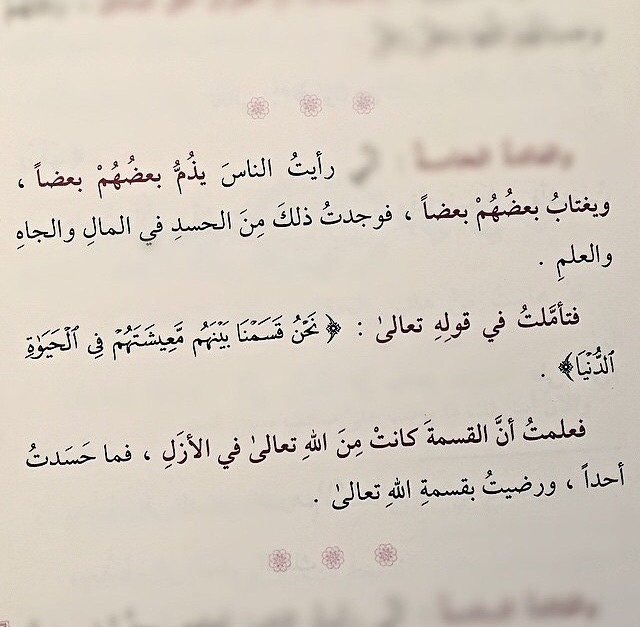 رأيتُ الناسَ يذُمُّ بعضُهُمْ بعضاً ،
ويغتابُ بعضُهُمْ بعضاً ، فوجدتُ ذلكَ مِنَ الحسدِ في المالِ والجاهِ
والعلمِ .
فتأمَّلتُ في قولِهِ تعالىٰ : ﴿نَحْنُ قَسَمْنَا بَيْنَهُم مَّعِيشَتَهُمْ فِى ٱلْحَيَوٰةِ
ٱلدُّنْيَا﴾ .
فعلمتُ أنَّ القسمةَ كانتْ مِنَ اللهِ تعالىٰ في الأزَلِ ، فما حَسَدتُ
أحداً ، ورضيتُ بقسمةِ اللهِ تعالىٰ .